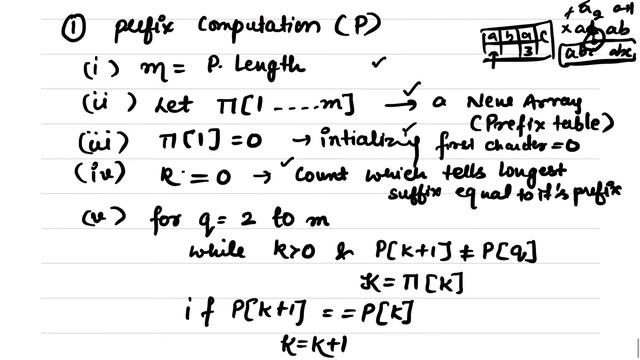 ① prefix Computation (P)
(i) m = P. Length ✓
(ii) Let Π[1 ---- m] → a New Array
(Prefix table)
(iii) Π[1] = 0 → intializing first charcter = 0
(iv) K = 0 → Count which tells longest
suffix equal to it's prefix
(v) for q = 2 to m
while k>0 & P[k+1] ≠ P[q]
K = Π[k]
if P[k+1] == P[k]
K = K+1
a b a c
3